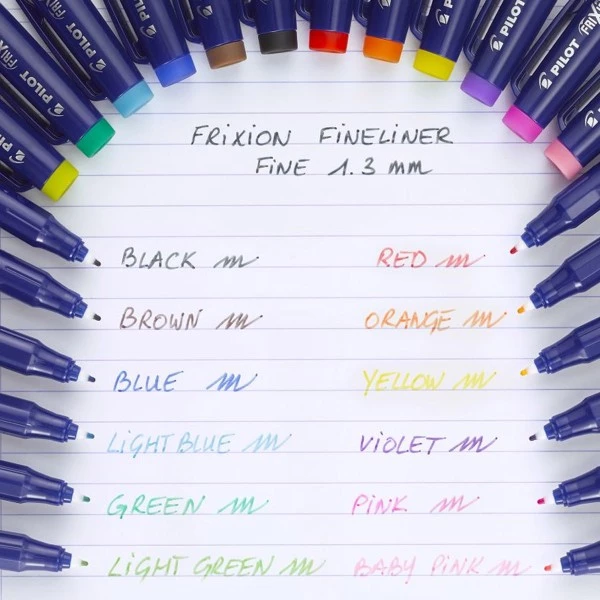 PILOT
FRIXION
PILOT
PILOT
PILOT
PILOT FRIX
FRIXION FINELINER
FINE 1.3 mm
BLACK
RED
BROWN
ORANGE
BLUE
YELLOW
LIGHT BLUE
VIOLET
GREEN
PINK
LIGHT GREEN
BABY PINK